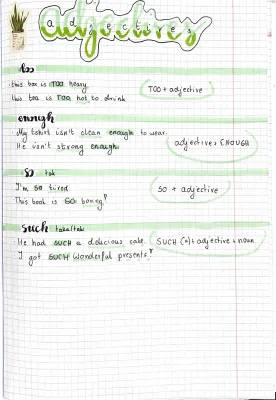 adjectives
too
this box is TOO heavy
this tea is TOO hot to drink
TOO + adjective
enough
My tshirt isn't clean enough to wear.
He isn't strong enough
adjective + ENOUGH
so tak
I'm SO tired
This book is SO boring!
SO + adjective
such taka/taki
He had SUCH a delicious cake
I got SUCH wonderful presents!
SUCH (a) + adjective + noun